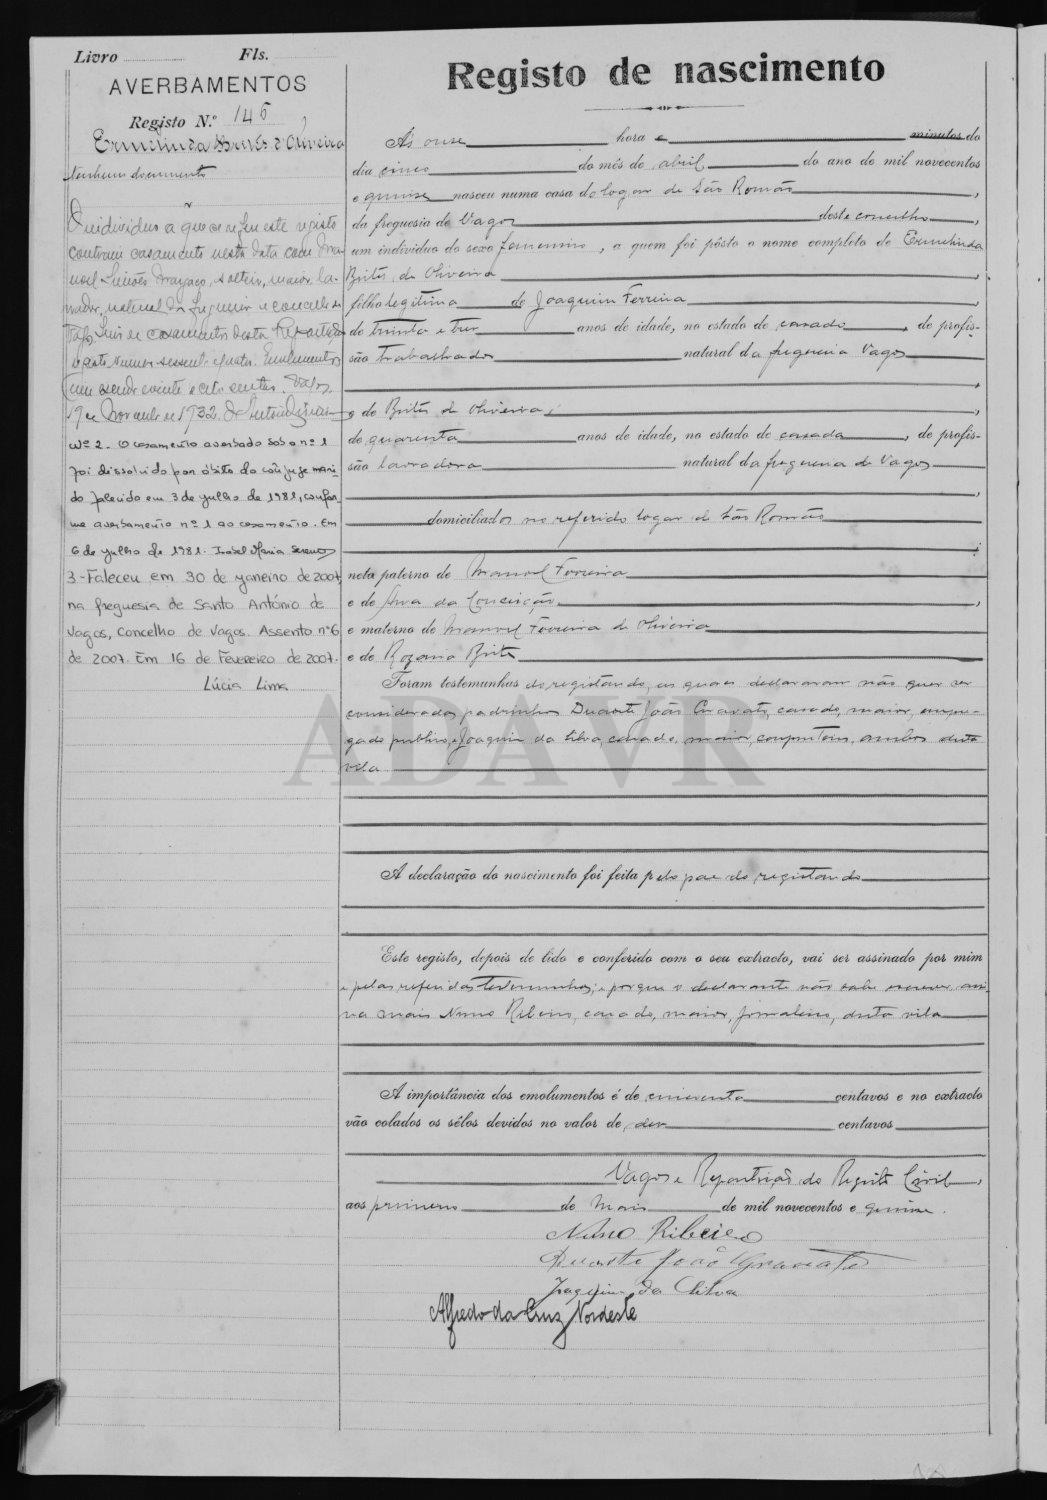 Livro Fls.
AVERBAMENTOS
Registo N.º 146
Ermelinda Brites d'Oliveira
Nenhum documento
O individuo a que se refere este registo
contraiu casamento nesta data com Ma-
nuel Simões, solteiro, maior, la-
vrador, natural da freguesia e concelho de
Vagos de casamentos desta Repartição
sessenta e quatro. Emolumentos
vinte e oito centavos. Vagos,
19 de Novembro de 1932.
Nº 2 - O casamento averbado sob o nº 1
foi dissolvido por óbito do cônjuge mari-
do falecido em 3 de julho de 1981, confor-
me averbamento nº 1 ao casamento. Em
6 de julho de 1981. Isabel Maria
3 - Faleceu em 30 de janeiro de 2007,
na freguesia de Santo António de
Vagos, Concelho de Vagos. Assento nº 6
de 2007. Em 16 de Fevereiro de 2007.
Lúcia Lima
Registo de nascimento
Ás onze hora e minutos do
dia cinco do mês de abril do ano de mil novecentos
e quinze nasceu numa casa do logar de São Romão,
da freguesia de Vagos deste concelho,
um individuo do sexo femenino, a quem foi pôsto o nome completo de Ermelinda
Brites de Oliveira,
filha legitima de Joaquim Ferreira,
de trinta e tres anos de idade, no estado de casado, de profis-
são trabalhador natural da freguesia Vagos
,
e de Brites de Oliveira,
de quarenta anos de idade, no estado de casada, de profis-
são lavradora natural da freguesia de Vagos
,
domiciliados no referido logar de São Romão
;
neta paterno de Manoel Ferreira
e de Ana da Conceição,
e materno de Manoel Ferreira de Oliveira
e de Rozaria Brites
Foram testemunhas do registando, os quaes declararam não quer ser
considerados padrinhos Duarte João Gravato, casado, maior, empre-
gado publico, e Joaquim da Silva, casado, maior, carpinteiro, ambos desta
vila
ADAVR
A declaração do nascimento foi feita pelo pae do registando
Este registo, depois de lido e conferido com o seu extracto, vai ser assinado por mim
e pelas referidas testemunhas, e porque o declarante não sabe escrever assi-
na mais Nuno Ribeiro, casado, maior, jornaleiro, desta vila
A importância dos emolumentos é de cincoenta centavos e no extracto
vão colados os sêlos devidos no valor de dez centavos
Vagos e Repartição do Registo Civil,
aos primeiro de Maio de mil novecentos e quinze.
Nuno Ribeiro
Duarte João Gravato
Joaquim da Silva
Alfredo da Cruz Nordeste